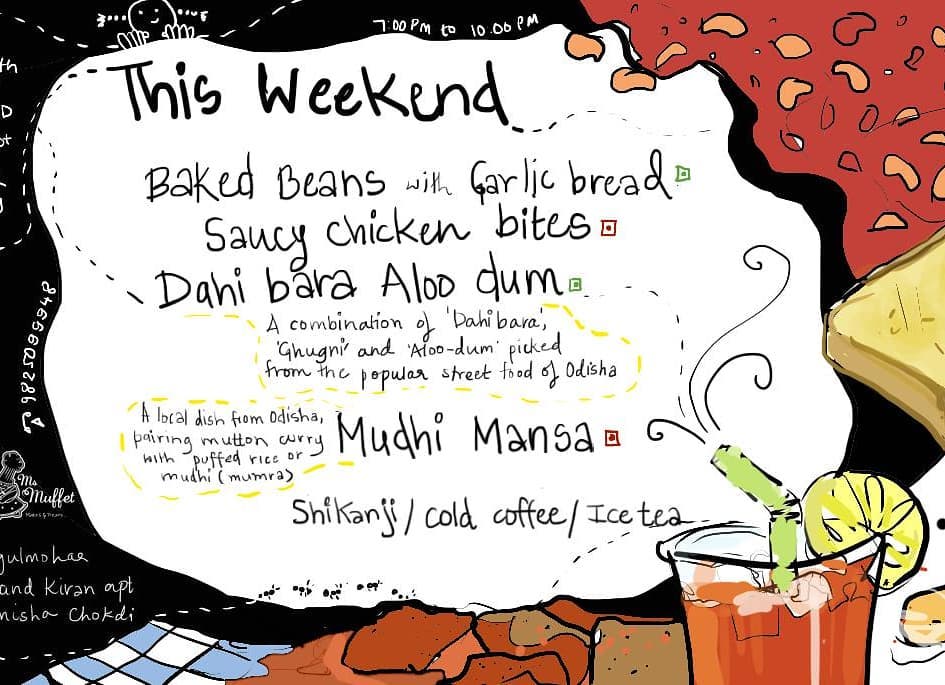 7:00 PM to 10.00 PM
This Weekend
Baked Beans with Garlic bread
Saucy chicken bites
Dahi bara Aloo dum
A combination of 'Dahibara',
'Ghugni' and 'Aloo-dum' picked
from the popular street food of Odisha
A local dish from Odisha,
pairing mutton curry
with puffed rice or
mudhi (mumra)
Mudhi Mansa
Shikanji / cold coffee / Ice tea
th
D
ot
9825099948
Ms
Muffet
gulmohar
and Kiran apt
nisha Chokdi